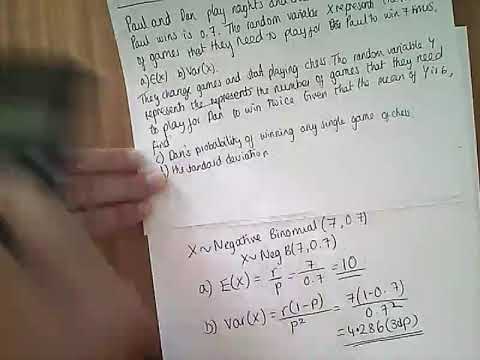 Paul and Dan play noughts and
Paul wins is 0.7. The random variable X represents the
of games that they need to play for Paul to win 7 times.
a) E(x) b) Var(x).
They change games and start playing chess. The random variable Y
represents the represents the number of games that they need
to play for Dan to win twice Given that the mean of Y is 6,
find
c) Dan's probability of winning any single game of chess
d) the standard deviation
X ~ Negative Binomial (7, 0.7)
X ~ Neg B(7, 0.7)
a) E(x) = r/p = 7/0.7 = 10
b) Var(x) = r(1-p)/p² = 7(1-0.7)/0.7²
= 4.286 (3dp)